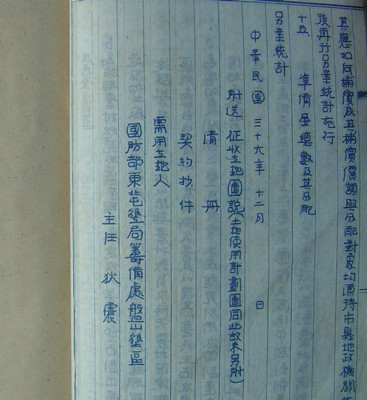 其應如何補償及其補償價額與分配對象均須待市縣地政機關
後再行另案統計施行
十五 準備金總數及其分配
另案統計
中華民國三十六年十二月 日
附送 征收土地圖說(土地使用計劃圖同此故未另附)
清冊
契約抄件
需用土地人
國防部東北屯墾局籌備處盤山墾區
主任 狄震